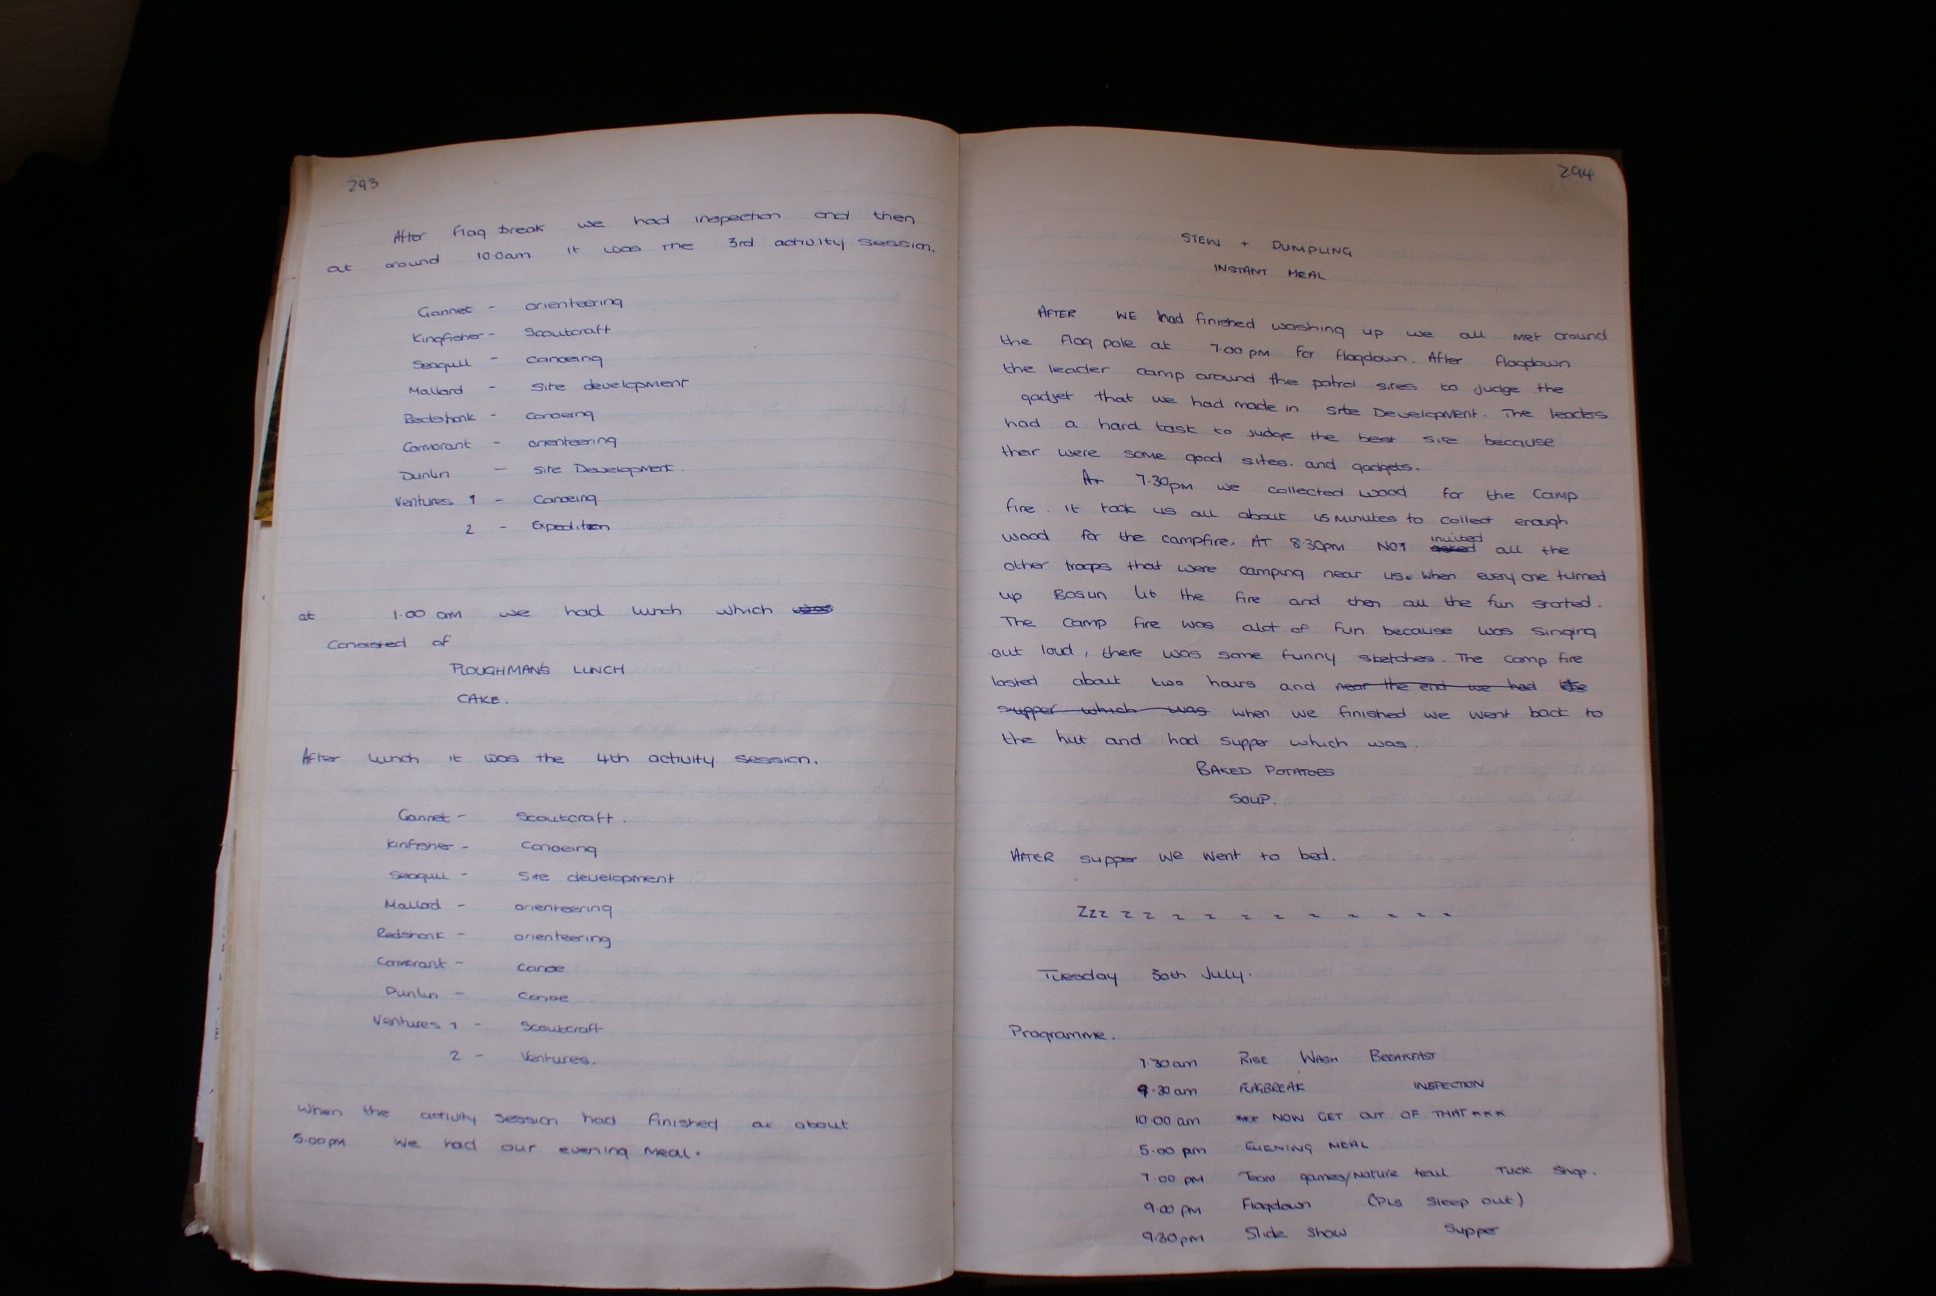 293
After flag break we had inspection and then
at around 10.0am it was the 3rd activity session.
Gannet - orienteering
Kingfisher - Scoutcraft
Seagull - canoeing
Mallard - site development
- canoeing
Cormorant - orienteering
Dunlin - site Development.
Ventures 1 - Canoeing
2 - Expedition
at 1.00 am we had lunch which was
Consisted of
PLOUGHMAN'S LUNCH
CAKE.
After lunch it was the 4th activity session.
Gannet - Scoutcraft.
Kinfisher - Canoeing
Seagull - Site development
Mallard - orienteering
Redshank - orienteering
Cormorant - canoe
Dunlin - canoe
Ventures 1 - Scoutcraft
2 - Ventures.
When the activity session had finished at about
5.00pm we had our evening meal.
294
STEW + DUMPLING
INSTANT MEAL
AFTER WE had finished washing up we all met around
the flag pole at 7.00 pm for flagdown. After flagdown
the leader camp around the patrol sites to judge the
gadjet that we had made in site Development. The leaders
had a hard task to judge the best site because
their were some good sites. and gadgets.
At 7.30pm we collected wood for the Camp
fire. it took us all about 15 minutes to collect enough
wood for the campfire. AT 8.30pm NOT invited
asked all the
other troops that were camping near us. when every one turned
up Bosun lit the fire and then all the fun started.
The camp fire was alot of fun because was singing
out loud, there was some funny sketches. The camp fire
lasted about two hours and near the end we had the
supper which was when we finished we went back to
the hut and had supper which was.
BAKED POTATOES
SOUP.
AFTER supper we went to bed.
Zzz z z z z z z z z z z z
Tuesday 30th July.
Programme.
7.30am RISE WASH BREAKFAST
9.30am FLAGBREAK INSPECTION
10.00 am *** NOW GET OUT OF THAT ***
5.00 pm EVENING MEAL
7.00 PM Team games/Nature trail Tuck shop.
9.00 pm Flagdown (PLs sleep out)
9.30pm Slide show Supper